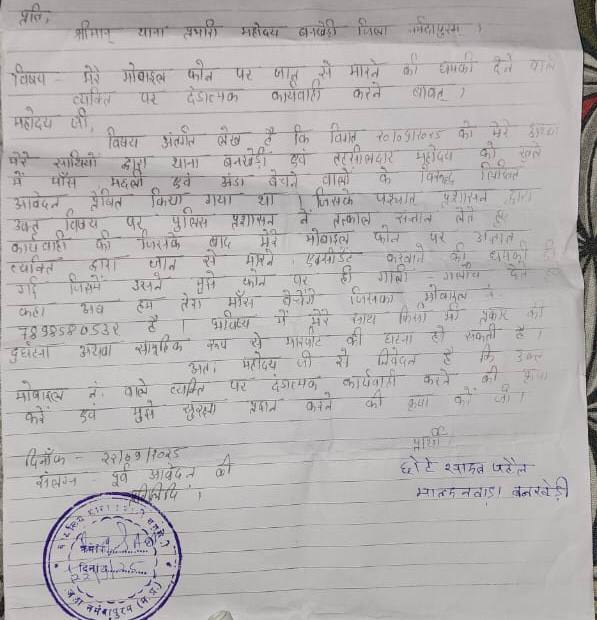 प्रति,
श्रीमान् थाना प्रभारी महोदय बनखेड़ी जिला नर्मदापुरम् ।
विषय - मेरे मोबाइल फोन पर जान से मारने की धमकी देने वाले
व्यक्ति पर दंडात्मक कार्यवाही करने बावत् ।
महोदय जी,
विषय अंतर्गत लेख है कि विगत को मेरे द्वारा
मेरे साथियों द्वारा थाना बनखेड़ी एवं तहसीलदार महोदय को खुले
में माँस मछली एवं अंडा बेचने वालों के विरुद्ध लिखित
आवेदन प्रेषित किया गया था । जिसके पश्चात प्रशासन द्वारा
उक्त विषय पर पुलिस प्रशासन ने तत्काल संज्ञान लेते हुए
कार्यवाही की जिसके बाद मेरे मोबाइल फोन पर अज्ञात
व्यक्ति द्वारा जान से मारने, एक्सीडेंट करवाने की धमकी दी
गई जिसमें उसने मुझे फोन पर ही गाली - गलौच देते हुए
कहा अब हम तेरा माँस बेचेंगे जिसका मोबाइल नं.
है । भविष्य में मेरे साथ किसी भी प्रकार की
दुर्घटना अथवा सामूहिक रूप से मारपीट की घटना हो सकती है ।
अतः महोदय जी से निवेदन है कि उक्त
मोबाइल नं. वाले व्यक्ति पर दंडात्मक कार्यवाही करने की कृपा
करें एवं मुझे सुरक्षा प्रदान करने की कृपा करें जी ।
प्रार्थी
दिनाँक - 22/09/2025
संलग्न - पूर्व आवेदन की
प्रतिलिपि ।
छोटे साहब पटेल
बनखेड़ी
दिनांक
नर्मदापुरम (म.प्र.)